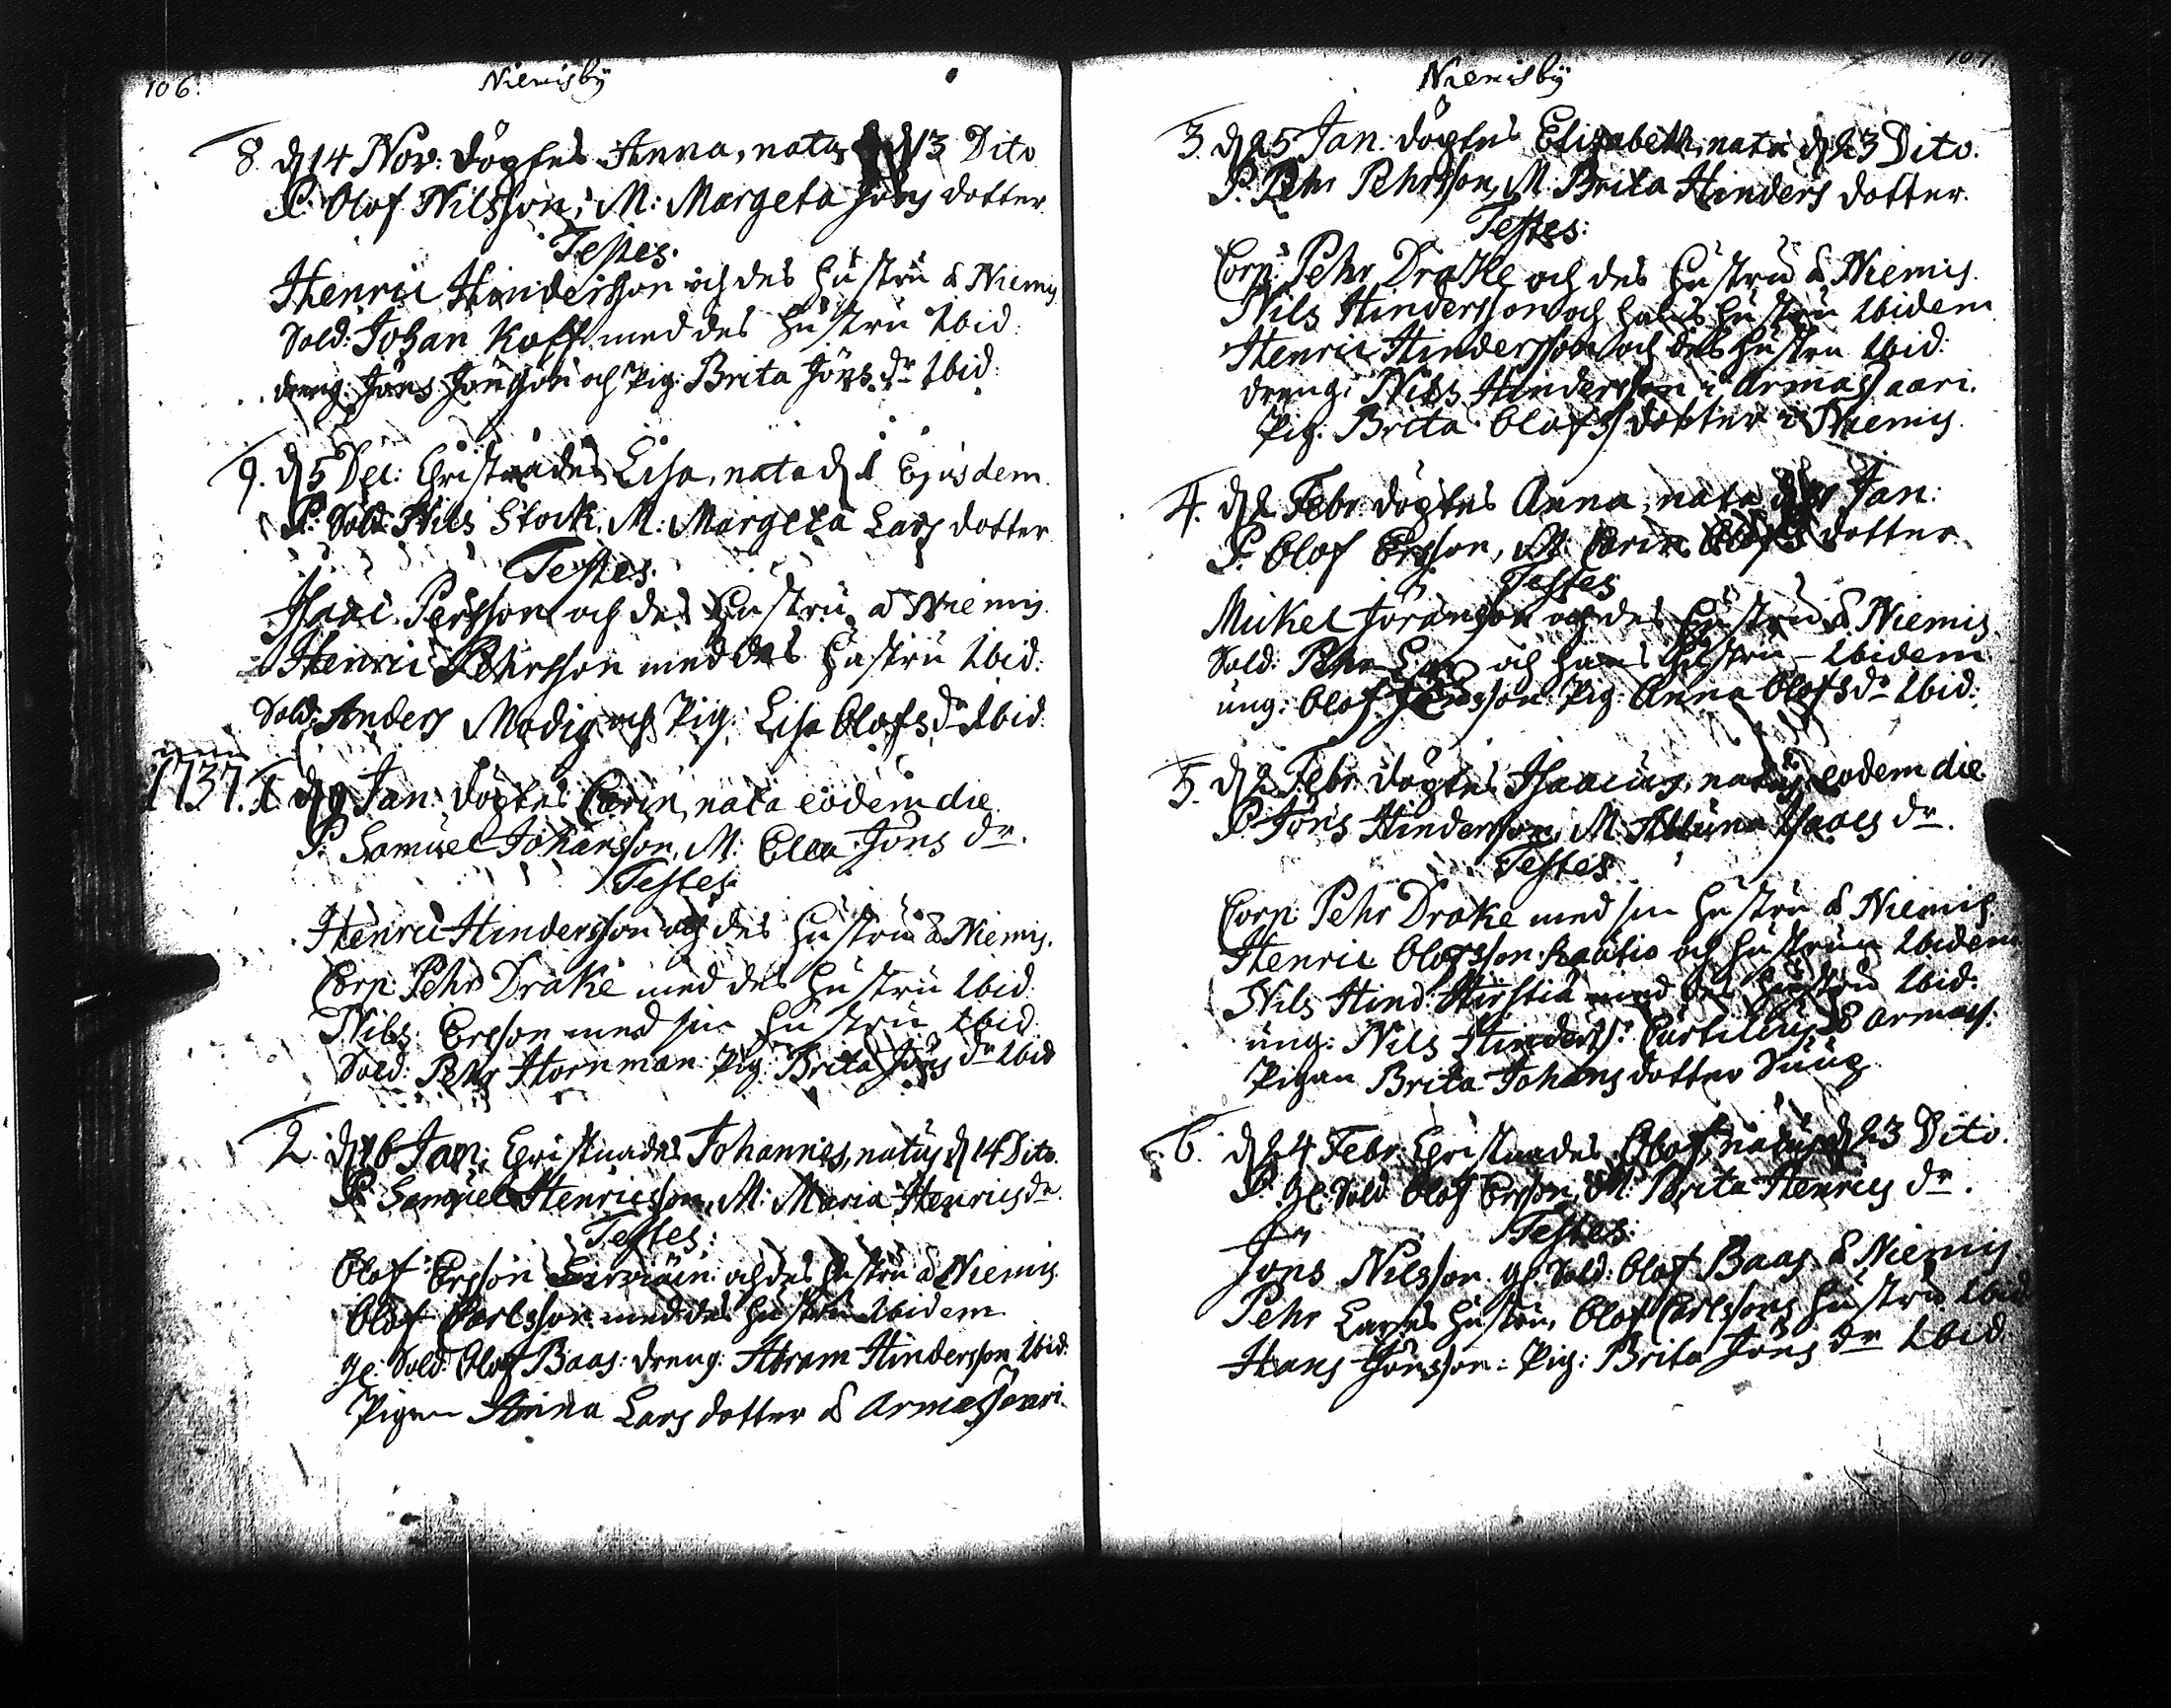 106.
Niemisby
8. d 14 Nov: döptes Anna, nata d 13 Dito
P. Olof Nilsson, M: Margeta Jöns dotter
Testes.
Henric Hindersson och des hustru à Niemis
Sold: Johan Koff med des hustru Ibid:
dreng: Jöns Jönsson och Pig: Brita Jöns dr Ibid:
9. d 5 Dec: Christnades Lisa, nata d 1 Ejusdem
P: Sold: Nils Stock, M: Margeta Lars dotter
Testes.
Isaac Persson och des hustru à Niemis.
Henric Pehrsson med des hustru Ibid:
Sold: Anders Modig och Pig: Lisa Olofs dr Ibid.
1737. 1. d 9 Jan: döptes Carin, nata eodem die.
P: Samuel Johansson, M: Ella Jöns dr.
Testes.
Henric Hindersson och des hustru à Niemis.
Corp: Pehr Drake med des hustru Ibid.
Nils Ersson med sin hustru Ibid
Sold: Pehr Hornman Pig: Brita Jöns dr Ibid
2. d 16 Jan: Christnades Johannes, natus d 14 Dito.
P: Samuel Henricsson, M: Maria Henrics dr.
Testes:
Olof Ersson och des hustru à Niemis
Olof Carlsson med des hustru Ibidem
gl: Sold: Olof Baas: dreng: Abram Hindersson Ibid:
Pigan Anna Lars dotter à Armassaari.
107.
Niemisby
3. d 25 Jan: döptes Elisabeth, nata d 23 Dito.
P. Pehr Pehrsson, M: Brita Hinders dotter.
Testes:
Corp: Pehr Drake och des hustru à Niemis.
Nils Hindersson och hans hustru Ibidem
Henric Hindersson och des hustru Ibid:
dreng: Nils Hindersson i Armassaari.
Pig: Brita Olofs dotter i Niemis.
4. d 2 Febr: döptes Anna, nata Jan:
P. Olof Ersson, M. Carin Olofs dotter
Testes
Mickel Joransson och des hustru à Niemis
Sold: Pehr och hans hustru - Ibidem
ung: Olof Pig: Anna Olofs dr Ibid:
5. d 2 Febr: döptes Isaacus, natus eodem die
P. Jöns Hindersson, M. Isaacs dr.
Testes
Corp: Pehr Drake med sin hustru à Niemis.
Henric Olofsson Rautio och hustrun Ibidem
Nils Hind: med des hustru Ibid:
ung: Nils Hinders: à Armass.
Pigan Brita Johans dotter
6. d 24 Febr: Christnades Olof, natus d 23 Dito.
P. gl: Sold: Olof Ersson, M: Brita Henrics dr.
Testes:
Jöns Nilsson. gl: Sold: Olof Baas à Niemis.
Pehr Larses hustru, Olof Carlssons hustru Ibid
Hans Jönsson: Pig: Brita Jöns dr Ibid.